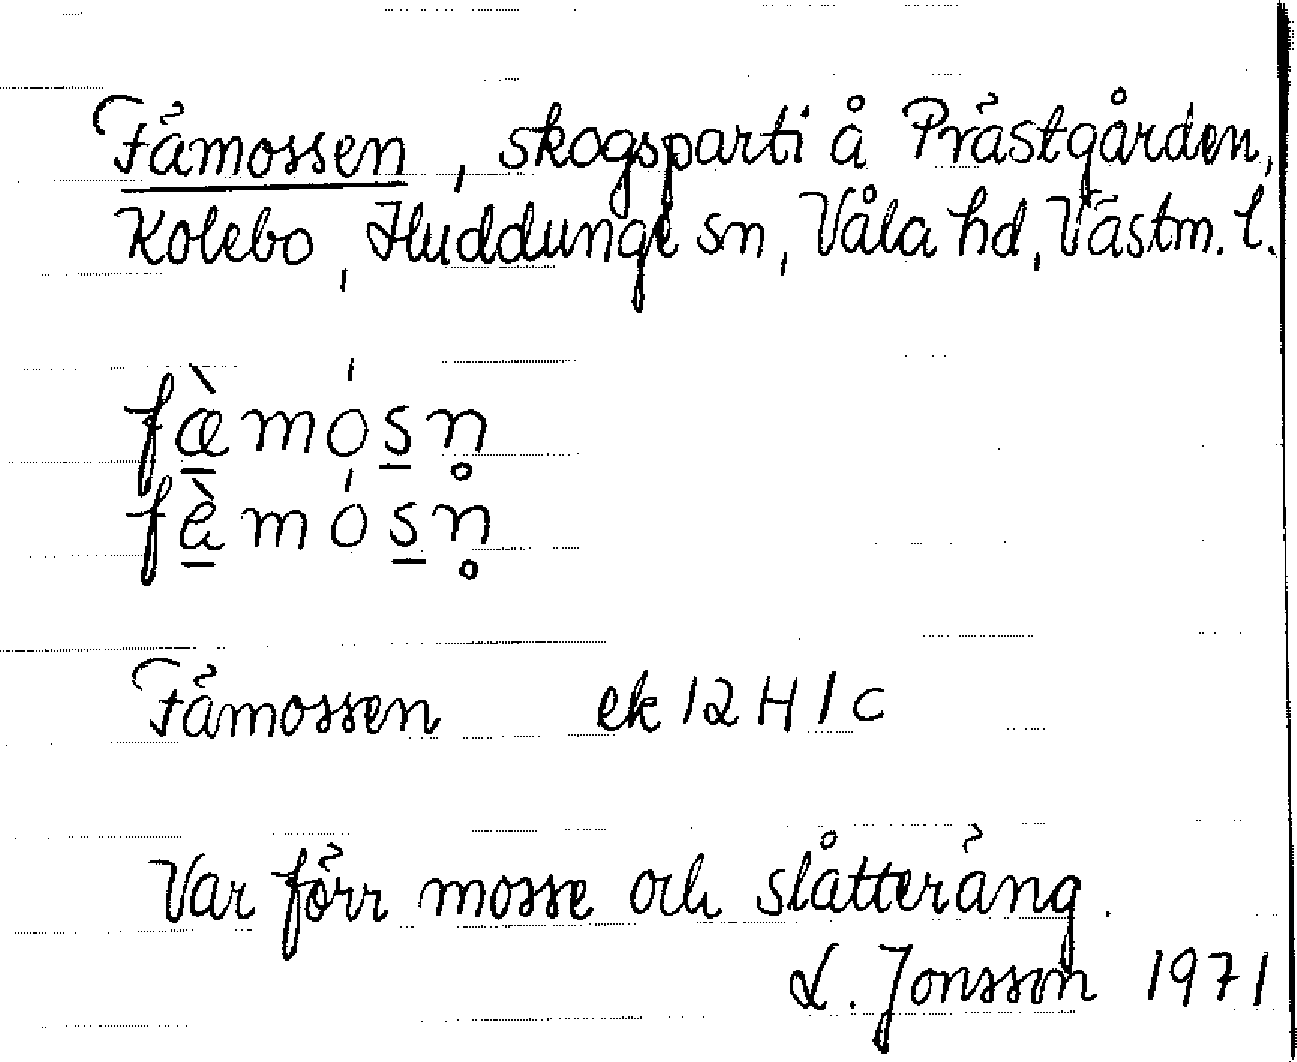 Fämossen, skogsparti å Prästgården,
Kolebo, Huddunge sn, Våla hd, Västm. l.
fæ̱̀mós̱n̥
fè̱mós̱n̥
Fämossen ek 12 H 1 c
Var förr mosse och slåtteräng.
L. Jonsson 1971